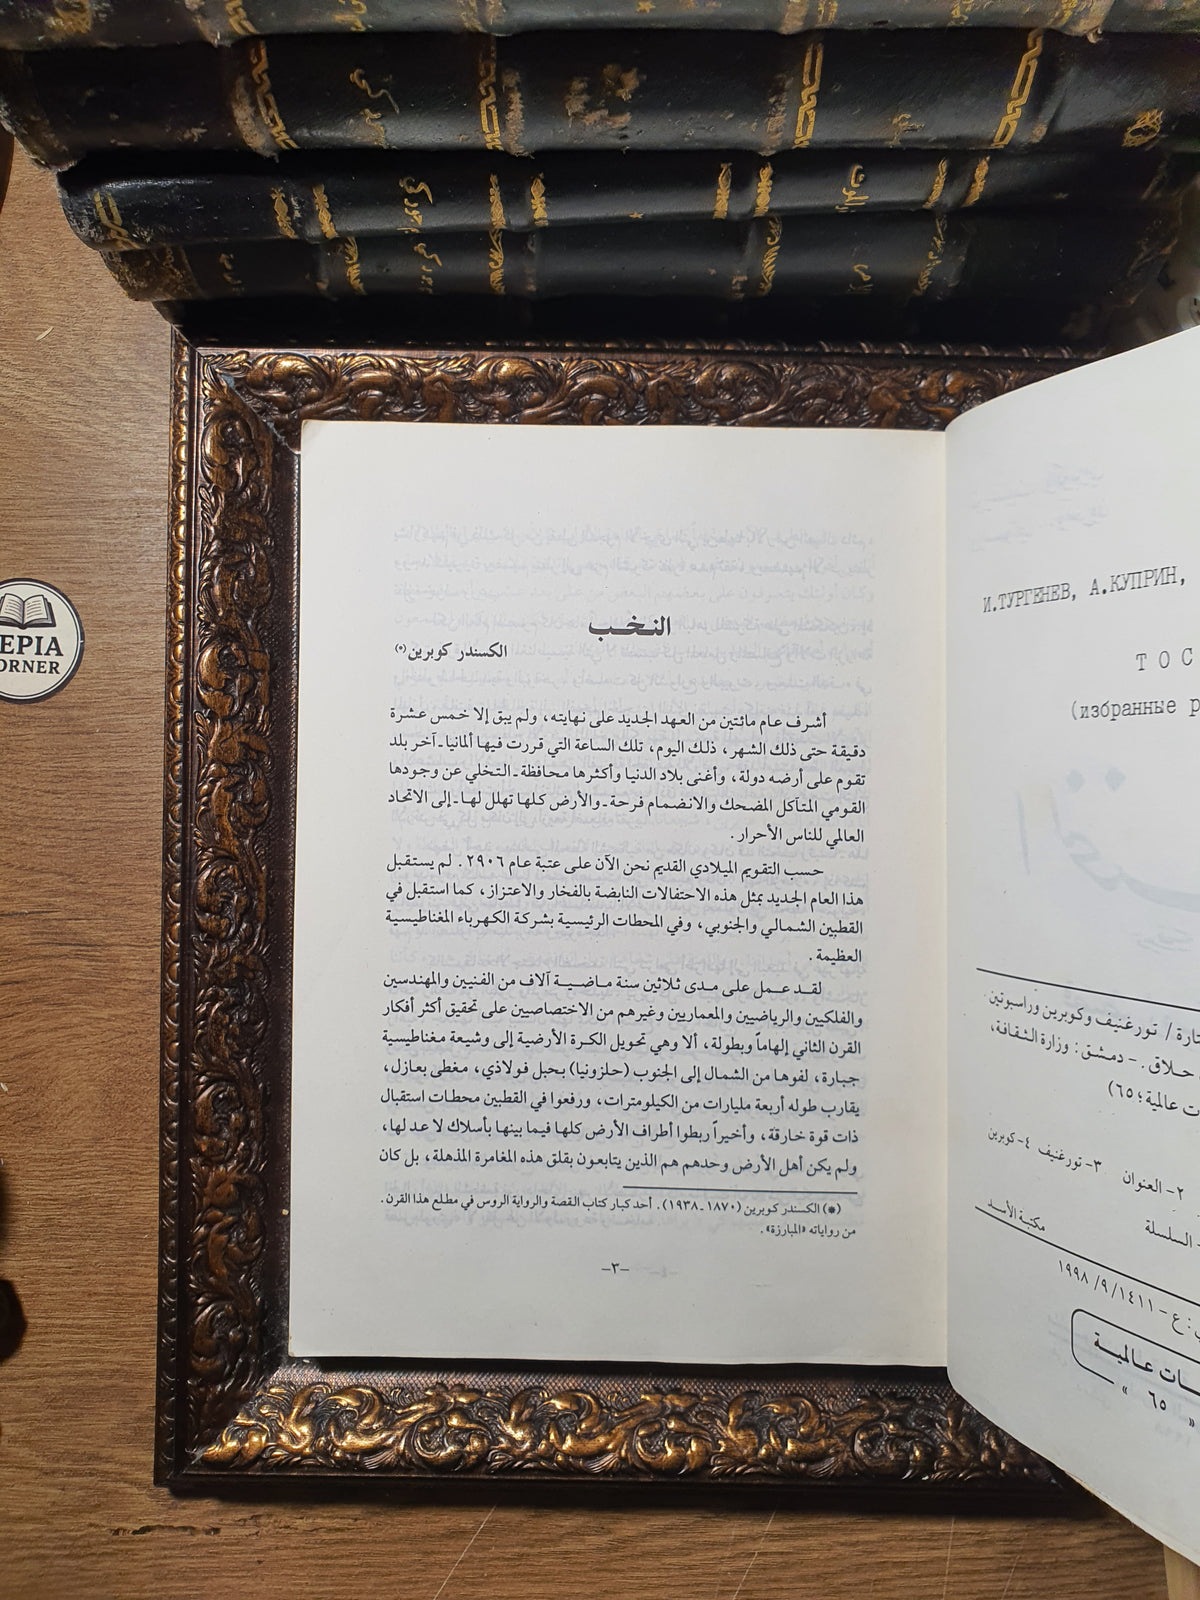 النخب
الكسندر كوبرين (*)
أشرف عام مائتين من العهد الجديد على نهايته، ولم يبق إلا خمس عشرة
دقيقة حتى ذلك الشهر، ذلك اليوم، تلك الساعة التي قررت فيها ألمانيا ـ آخر بلد
تقوم على أرضه دولة، وأغنى بلاد الدنيا وأكثرها محافظة ـ التخلي عن وجودها
القومي المتآكل المضحك والانضمام فرحة ـ والأرض كلها تهلل لها ـ إلى الاتحاد
العالمي للناس الأحرار.
حسب التقويم الميلادي القديم نحن الآن على عتبة عام ٢٩٠٦. لم يستقبل
هذا العام الجديد بمثل هذه الاحتفالات النابضة بالفخار والاعتزاز، كما استقبل في
القطبين الشمالي والجنوبي، وفي المحطات الرئيسية بشركة الكهرباء المغناطيسية
العظيمة.
لقد عمل على مدى ثلاثين سنة ماضية آلاف من الفنيين والمهندسين
والفلكيين والرياضيين والمعماريين وغيرهم من الاختصاصيين على تحقيق أكثر أفكار
القرن الثاني إلهاماً وبطولة، ألا وهي تحويل الكرة الأرضية إلى وشيعة مغناطيسية
جبارة، لفوها من الشمال إلى الجنوب (حلزونيا) بحبل فولاذي، مغطى بعازل،
يقارب طوله أربعة مليارات من الكيلومترات، ورفعوا في القطبين محطات استقبال
ذات قوة خارقة، وأخيراً ربطوا أطراف الأرض كلها فيما بينها بأسلاك لا عد لها،
ولم يكن أهل الأرض وحدهم هم الذين يتابعون بقلق هذه المغامرة المذهلة، بل كان
(*) الكسندر كوبرين (١٨٧٠ـ١٩٣٨). أحد كبار كتاب القصة والرواية الروس في مطلع هذا القرن.
من رواياته «المبارزة».
–٣–
И.ТУРГЕНЕВ, А.КУПРИН,
ТОС
(избранные р
تارة / تورغنيف وكوبرين وراسبوتين.
حلاق. - دمشق: وزارة الثقافة،
ت عالمية؛ ٦٥)
٢- العنوان ٣- تورغنيف ٤- كوبرين
السلسلة
مكتبة الأسد
ع - ١٤١١/ ٩/ ١٩٩٨
ـات عالمية
« ٦٥ »
EPIA
ORNER